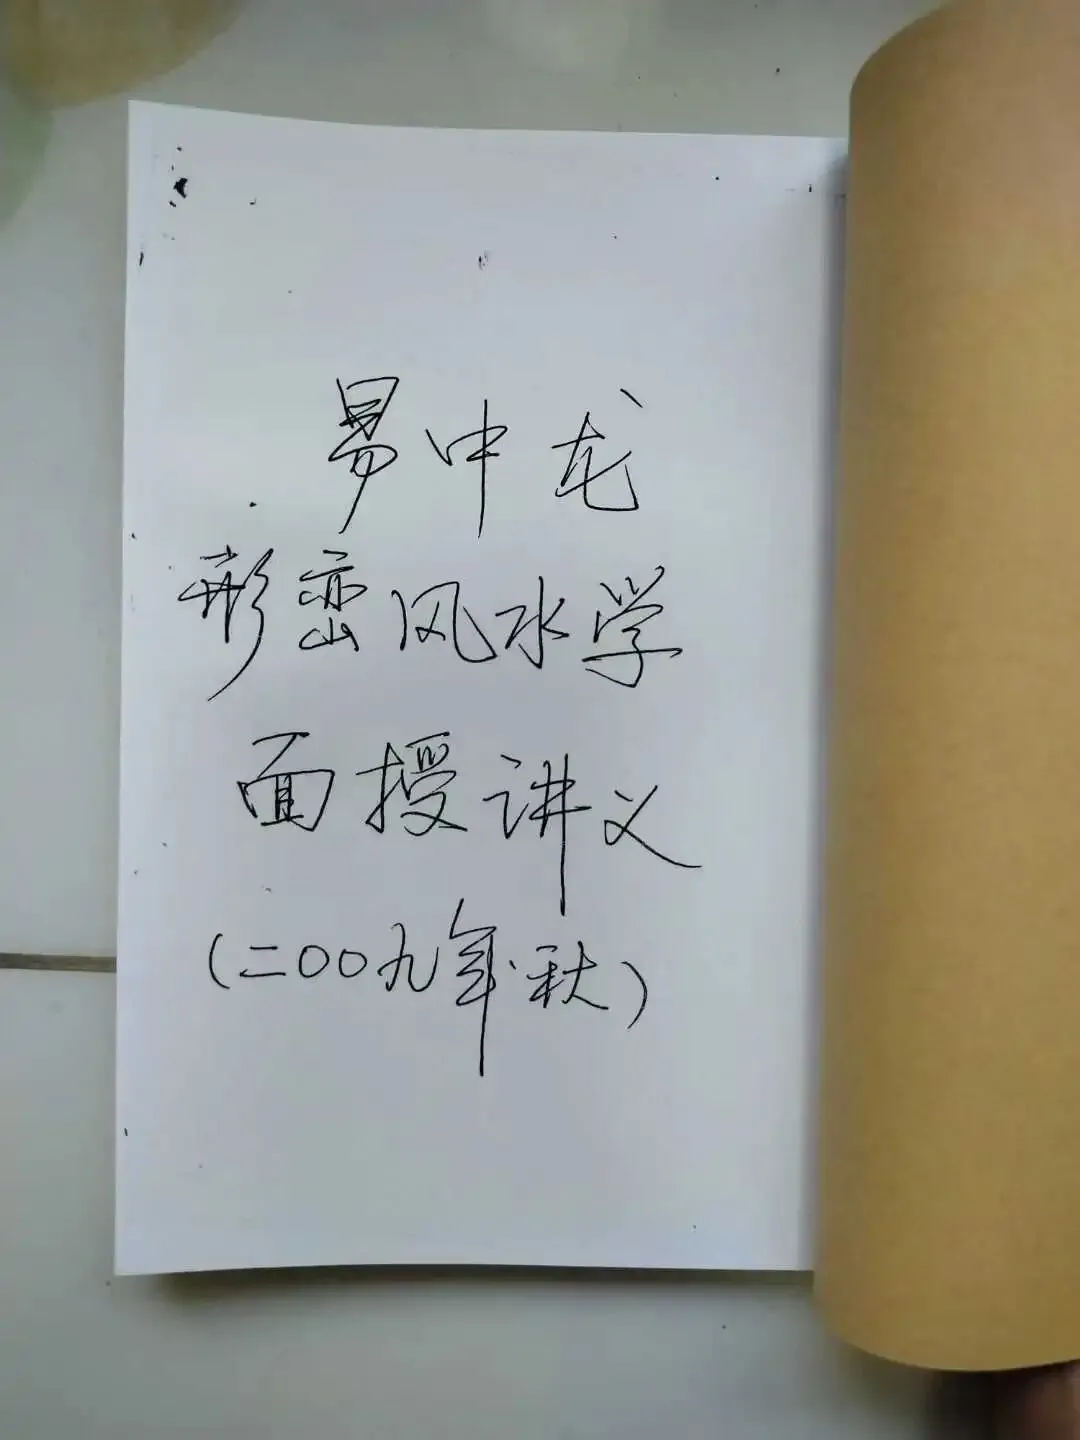 易中龙
形峦风水学
面授讲义
(二00九年.秋)